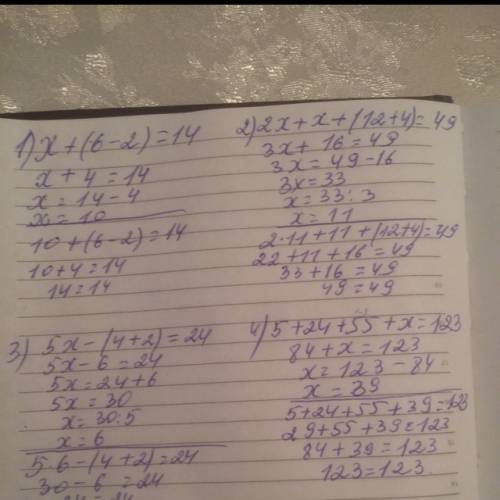 1) x + (6 - 2) = 14
x + 4 = 14
x = 14 - 4
x = 10
10 + (6 - 2) = 14
10 + 4 = 14
14 = 14
2) 2x + x + (12 + 4) = 49
3x + 16 = 49
3x = 49 - 16
3x = 33
x = 33 : 3
x = 11
2 · 11 + 11 + (12 + 4) = 49
22 + 11 + 16 = 49
33 + 16 = 49
49 = 49
3) 5x - (4 + 2) = 24
5x - 6 = 24
5x = 24 + 6
5x = 30
x = 30 : 5
x = 6
5 · 6 - (4 + 2) = 24
30 - 6 = 24
24 = 24
4) 5 + 24 + 55 + x = 123
84 + x = 123
x = 123 - 84
x = 39
5 + 24 + 55 + 39 = 123
29 + 55 + 39 = 123
84 + 39 = 123
123 = 123